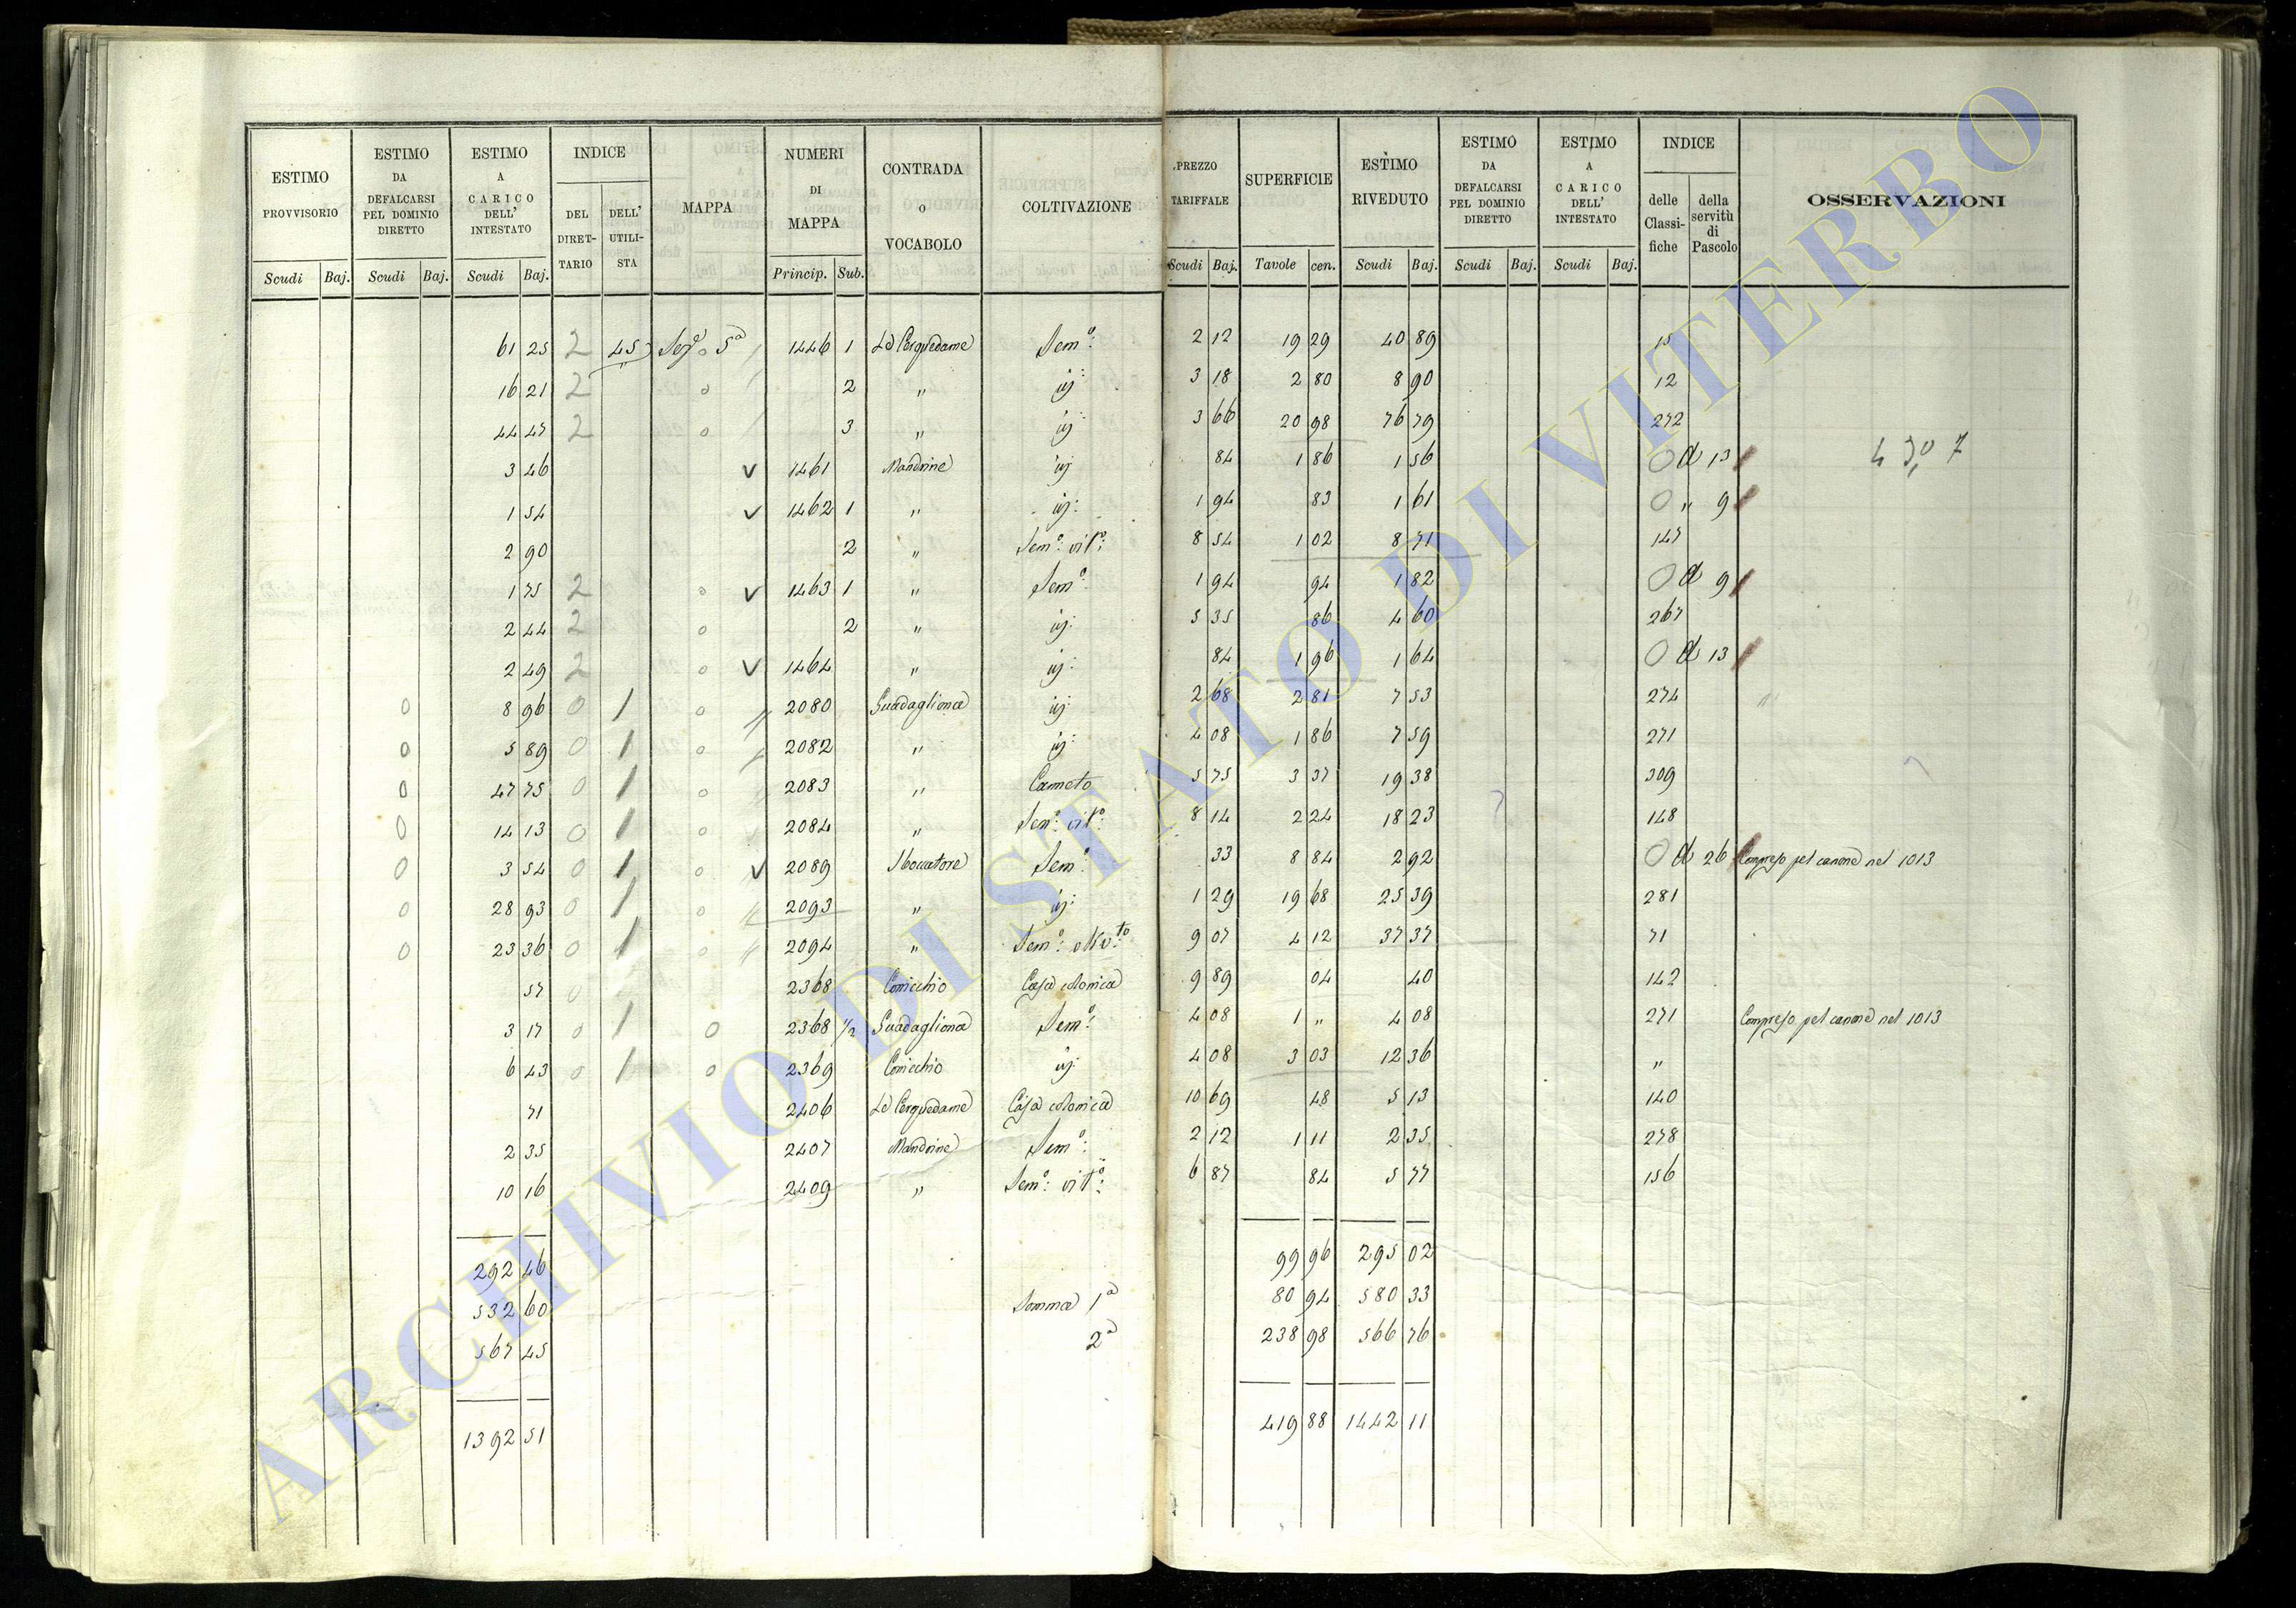 ESTIMO PROVVISORIO | ESTIMO DA DEFALCARSI PEL DOMINIO DIRETTO | ESTIMO A CARICO DELL' INTESTATO | INDICE | MAPPA | NUMERI DI MAPPA | CONTRADA O VOCABOLO | COLTIVAZIONE | PREZZO TARIFFALE | SUPERFICIE | ESTIMO RIVEDUTO | ESTIMO DA DEFALCARSI PEL DOMINIO DIRETTO | ESTIMO A CARICO DELL' INTESTATO | INDICE | OSSERVAZIONI
DEL DIRET-TARIO | DELL' UTILI-STA | delle Classi-fiche | della servitù di Pascolo
Scudi | Baj. | Scudi | Baj. | Scudi | Baj. | Princip. | Sub. | Scudi | Baj. | Tavole | cen. | Scudi | Baj. | Scudi | Baj. | Scudi | Baj.
61 25 2 45 Sez.e o 5a 1446 1 Le Cerquedame Sem.o: 2 12 19 29 40 89 15
16 21 2 o 2 " iij: 3 18 2 80 8 90 12
44 47 2 o 3 " iij: 3 66 20 98 76 79 272
3 46 v 1461 Mandrine iij 84 1 86 1 56 O d 13
1 54 v 1462 1 " iij: 1 94 83 1 61 O " 9
2 90 2 " Sem.o: vit.o: 8 54 1 02 8 71 147
1 75 2 o v 1463 1 " Sem.o: 1 94 94 1 82 O d 9
2 44 2 o 2 " iij: 5 35 86 4 60 267
2 49 2 o v 1464 " iij: 84 1 96 1 64 O d 13
0 8 96 0 1 o 2080 Guadagliona iij: 2 68 2 81 7 53 274 "
0 5 89 0 1 o 2082 " iij: 4 08 1 86 7 59 271
0 47 75 0 1 o 2083 " Canneto 5 75 3 37 19 38 309
0 14 13 0 1 o 2084 " Sem.o: vit.o: 8 14 2 24 18 23 148
0 3 54 0 1 o v 2089 Sboccatore Sem.o: 33 8 84 2 92 O d 26 Compreso pel canone nel 1013
0 28 93 0 1 o 2093 " iij: 1 29 19 68 25 39 281
0 23 36 0 1 o 2094 " Sem.o: olivto 9 07 4 12 37 37 71
57 0 2368 Conicchio Casa colonica 9 89 04 40 142
3 17 0 1 o 2368 1/2 Guadagliona Sem.o: 4 08 1 " 4 08 271 Compreso pel canone nel 1013
6 43 0 1 o 2369 Conicchio iij: 4 08 3 03 12 36 "
71 2406 Le Cerquedame Casa colonica 10 69 48 5 13 140
2 35 2407 Mandrine Sem.o: 2 12 1 11 2 35 278
10 16 2409 " Sem.o: vit.o: 6 87 84 5 77 156
292 46 99 96 295 02
532 60 Somma 1a 80 94 580 33
567 45 2a 238 98 566 76
1392 51 419 88 1442 11
ARCHIVIO DI STATO DI VITERBO